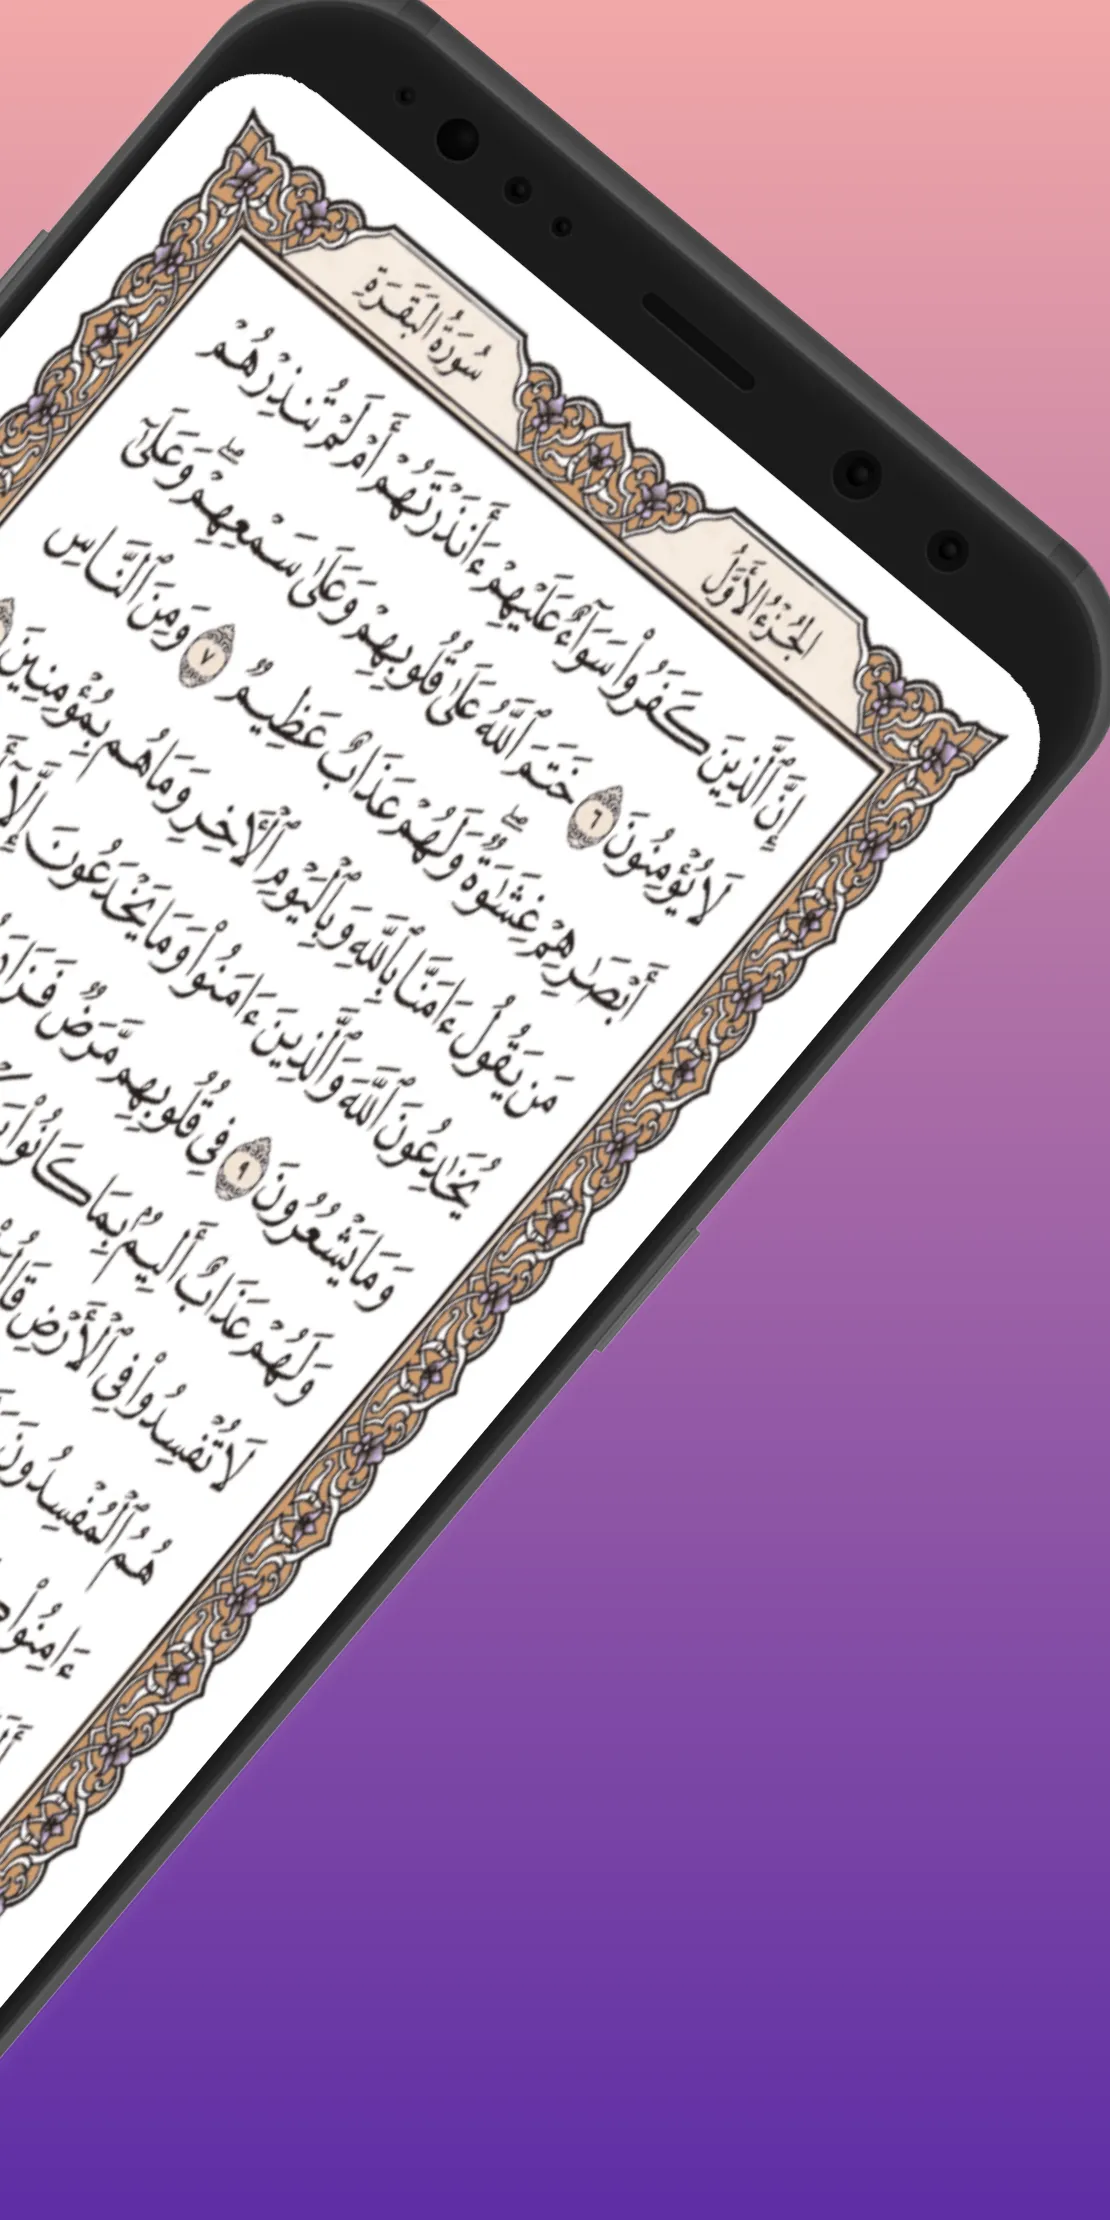 الجُزْءُ الأَوَّلُ
سُورَةُ البَقَرَةِ
إِنَّ ٱلَّذِينَ كَفَرُواْ سَوَآءٌ عَلَيْهِمْ ءَأَنذَرْتَهُمْ أَمْ لَمْ تُنذِرْهُمْ
لَا يُؤْمِنُونَ ٦ خَتَمَ ٱللَّهُ عَلَىٰ قُلُوبِهِمْ وَعَلَىٰ سَمْعِهِمْ ۖ وَعَلَىٰٓ
أَبْصَٰرِهِمْ غِشَٰوَةٌ ۖ وَلَهُمْ عَذَابٌ عَظِيمٌ ٧ وَمِنَ ٱلنَّاسِ
مَن يَقُولُ ءَامَنَّا بِٱللَّهِ وَبِٱلْيَوْمِ ٱلْأٓخِرِ وَمَا هُم بِمُؤْمِنِينَ
يُخَٰدِعُونَ ٱللَّهَ وَٱلَّذِينَ ءَامَنُواْ وَمَا يَخْدَعُونَ إِلَّآ
وَمَا يَشْعُرُونَ ٩ فِي قُلُوبِهِم مَّرَضٌ
وَلَهُمْ عَذَابٌ أَلِيمٌۢ بِمَا كَانُواْ
لَا تُفْسِدُواْ فِي ٱلْأَرْضِ
هُمُ ٱلْمُفْسِدُونَ
ءَامِنُواْ